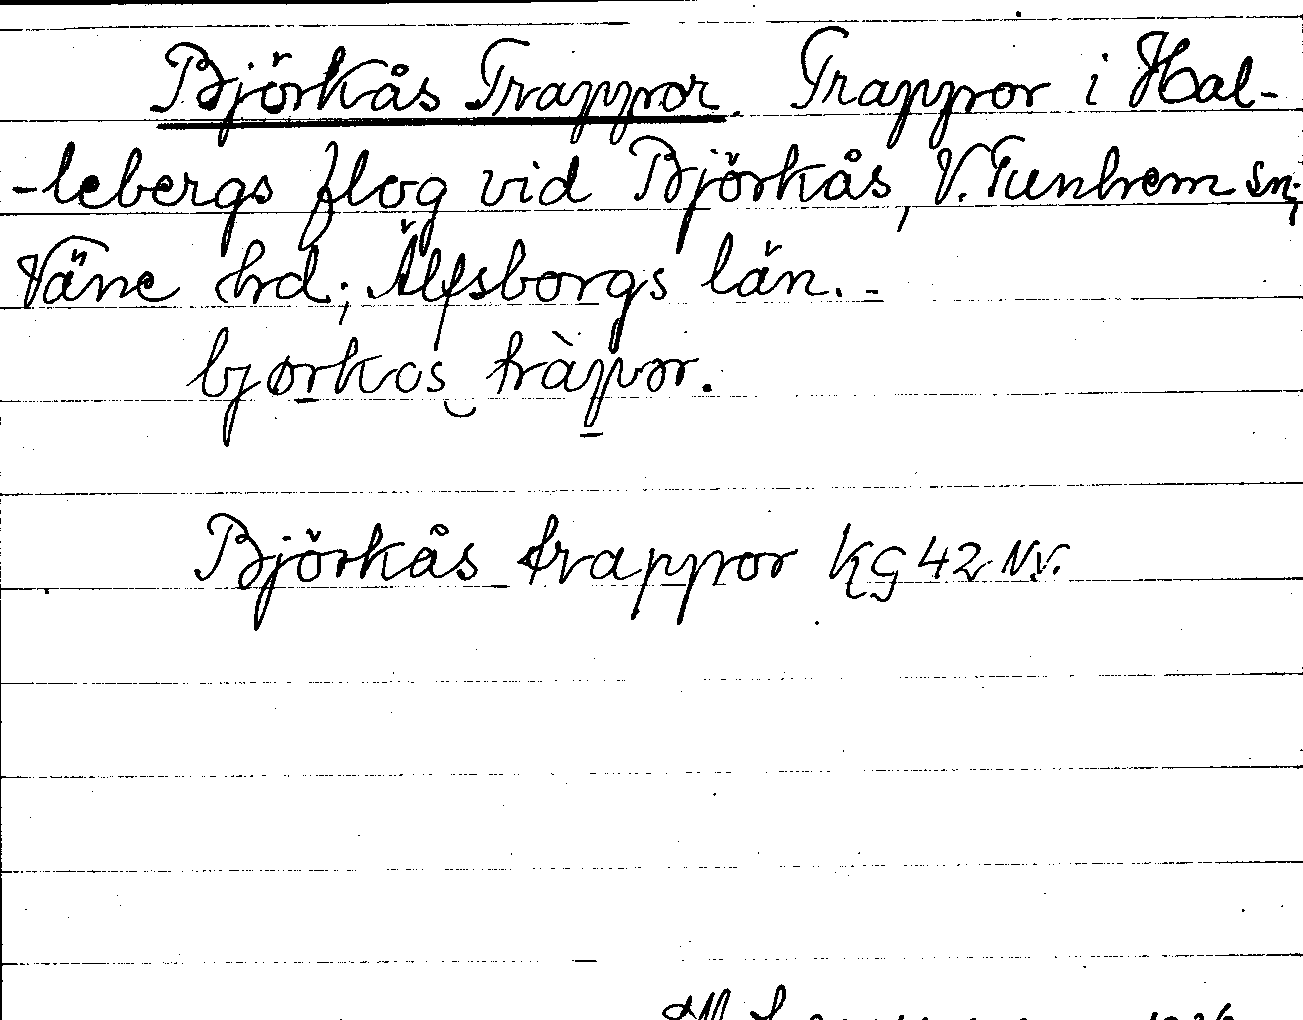 Björkås Trappor. Trappor i Hal-
-lebergs flog vid Björkås, V. Tunhem sn;
Väne hd; Älfsborgs län. -
bjørkos tràpor.
Björkås trappor KG 42 NV.